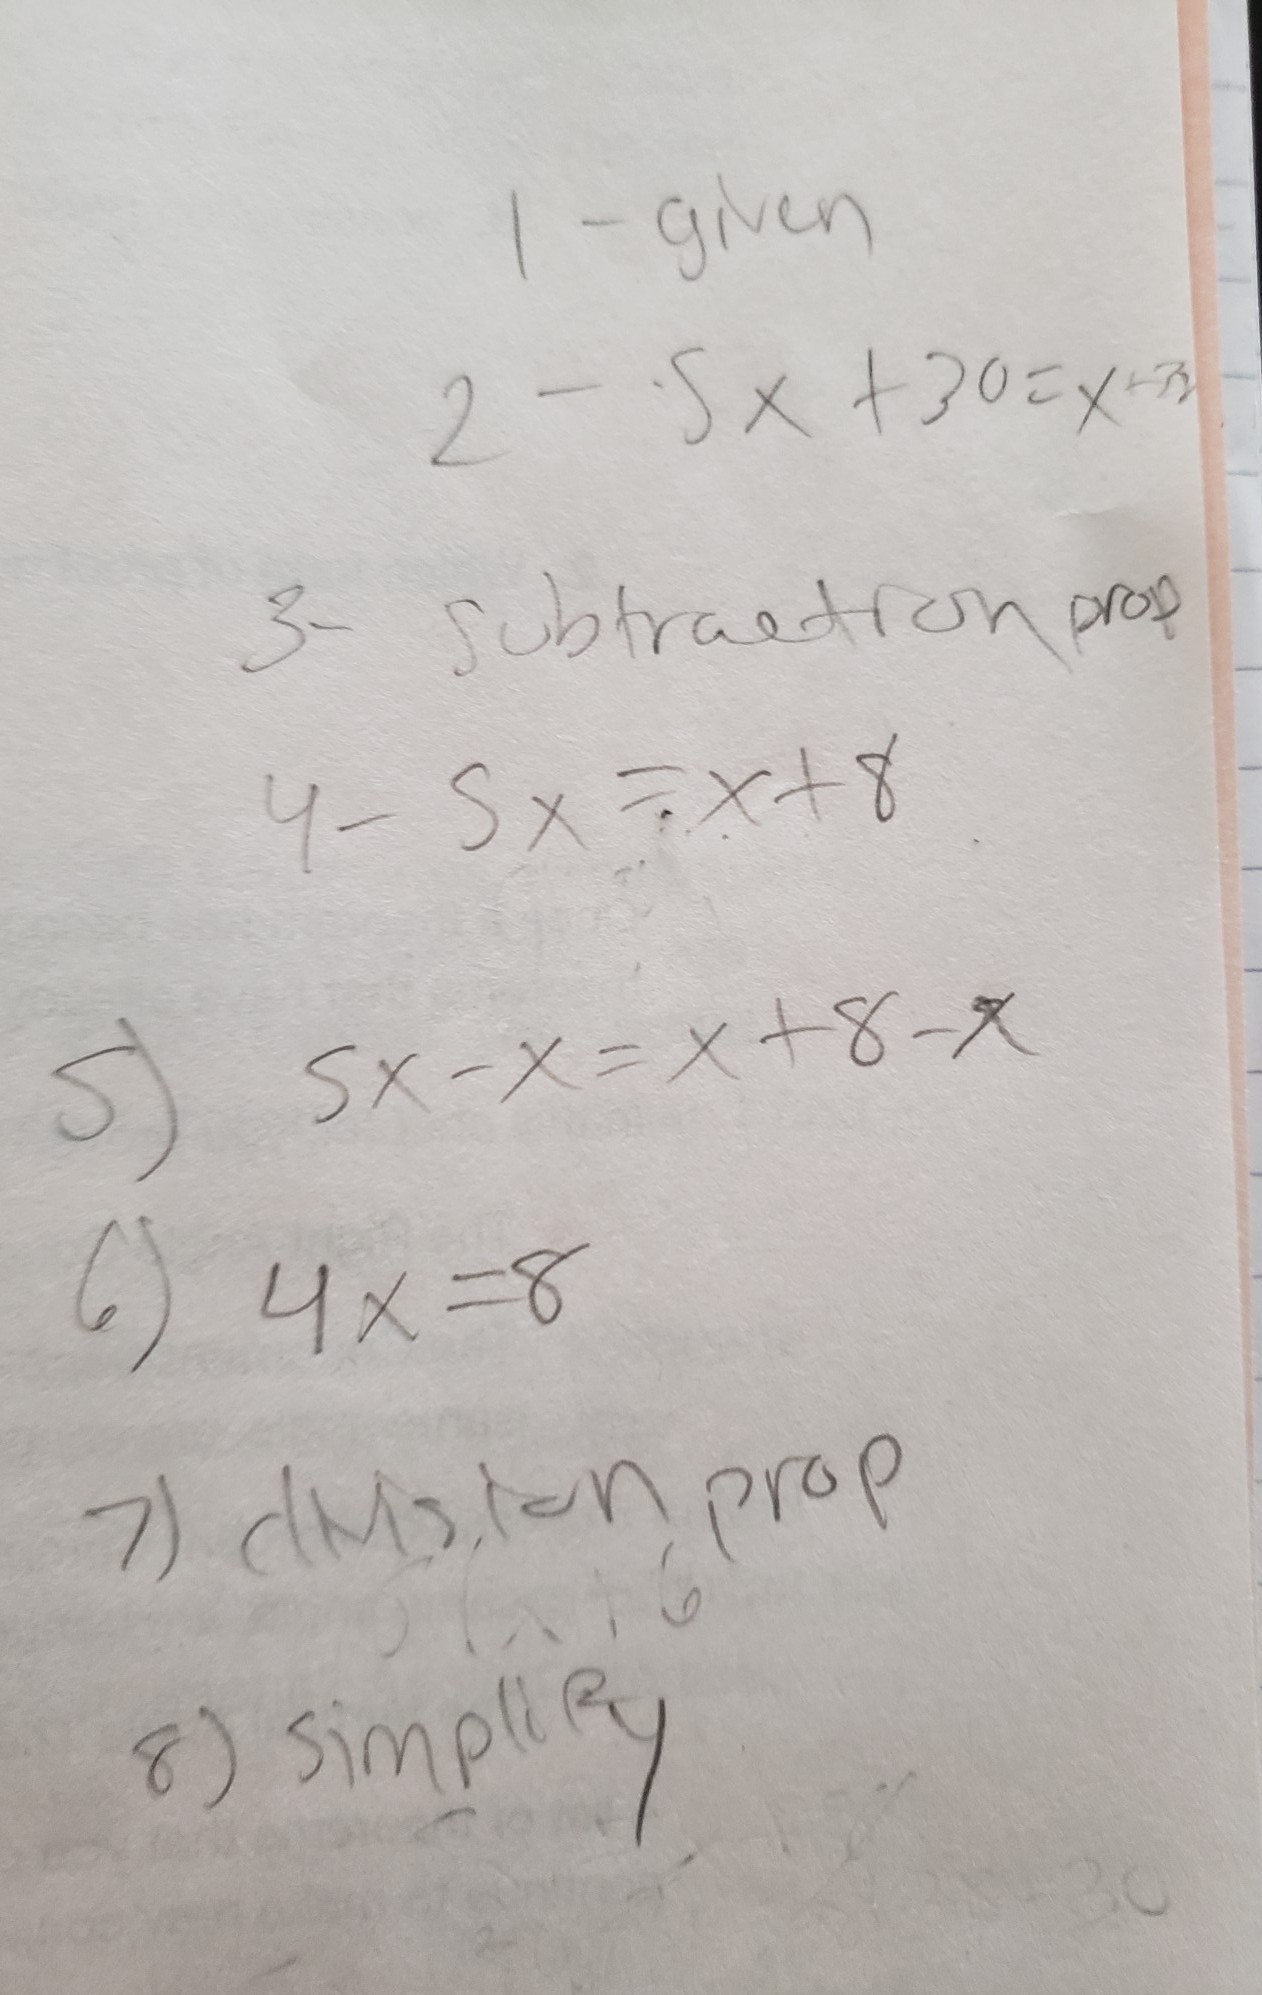 1 - given
2 - 5x + 30 = x
3- subtraction prop
4- 5x = x + 8
5) 5x - x = x + 8 - x
6) 4x = 8
7) division prop
(x + 6
8) simplify
30